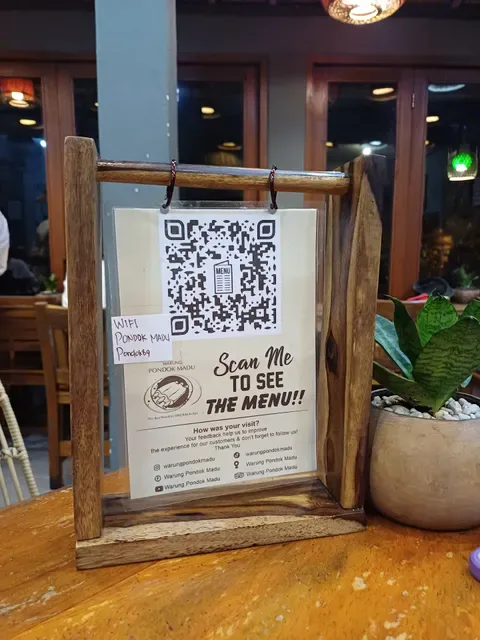 MENU
WIFI
PONDOK MADU
WARUNG
PONDOK MADU
Scan Me
TO SEE
THE MENU!!
How was your visit?
Your feedback help us to improve
the experience for our customers & don't forget to follow us!
Thank You
warungpondokmadu
Warung Pondok Madu
Warung Pondok Madu
warungpondokmadu
Warung Pondok Madu
Warung Pondok Madu